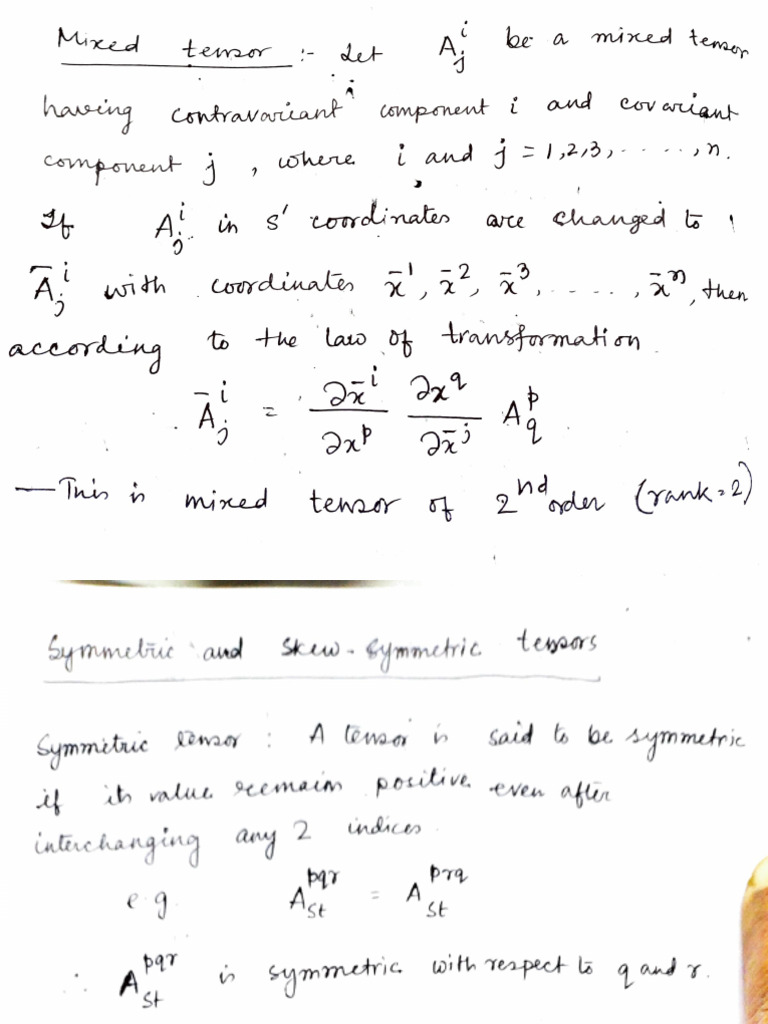 Mixed tensor :- Let A^i_j be a mixed tensor
having contravariant component i and covariant
component j, where i and j = 1,2,3, ....., n.
If A^i_j in s' coordinates are changed to
Ā^i_j with coordinates x̄^1, x̄^2, x̄^3, ....., x̄^n, then
according to the law of transformation
Ā^i_j = ∂x̄^i/∂x^p ∂x^q/∂x̄^j A^p_q
— This is mixed tensor of 2nd order (rank=2)
Symmetric and skew-symmetric tensors
Symmetric tensor : A tensor is said to be symmetric
if its value remain positive even after
interchanging any 2 indices.
e.g. A^pqr_st = A^prq_st
∴ A^pqr_st is symmetric with respect to q and r.